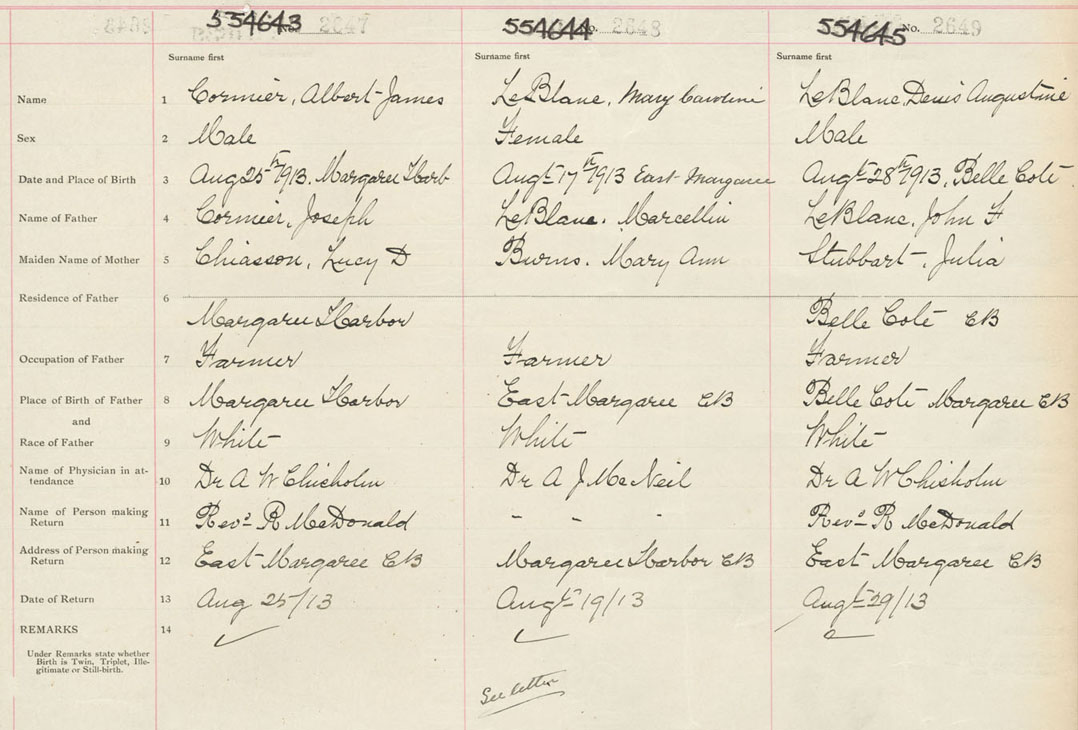 554643 No. 2647 554644 No. 2648 554645 No. 2649
Surname first Surname first Surname first
Name 1 Cormier, Albert James LeBlanc, Mary Caroline LeBlanc, Denis Augustine
Sex 2 Male Female Male
Date and Place of Birth 3 Aug 25th 1913. Margaree Harb Augt 17th 1913 East Margaree Augt 28th 1913, Belle Cote
Name of Father 4 Cormier, Joseph LeBlanc. Marcellin LeBlanc, John F
Maiden Name of Mother 5 Chiasson, Lucy D Burns. Mary Ann Stubbart, Julia
Residence of Father 6
Margaree Harbor Belle Cote CB
Occupation of Father 7 Farmer Farmer Farmer
Place of Birth of Father 8 Margaree Harbor East Margaree CB Belle Cote Margaree CB
and
Race of Father 9 White White White
Name of Physician in at-
tendance 10 Dr A W Chisholm Dr A J McNeil Dr A W Chisholm
Name of Person making
Return 11 Revd R McDonald - - - Revd R McDonald
Address of Person making
Return 12 East Margaree CB Margaree Harbor CB East Margaree CB
Date of Return 13 Aug 25/13 Augt 19/13 Augt 29/13
REMARKS 14
Under Remarks state whether
Birth is Twin, Triplet, Ille-
gitimate or Still-birth.
See letter